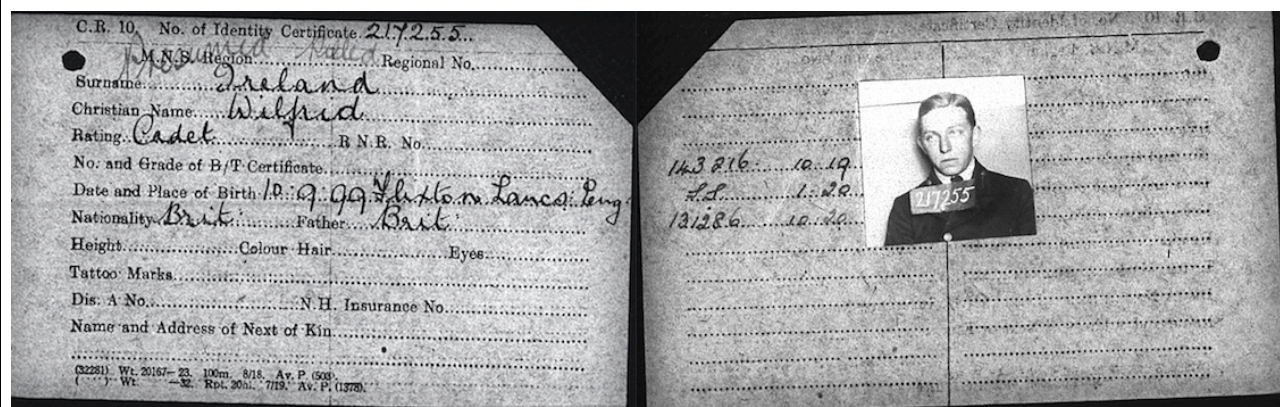 C.R. 10. No. of Identity Certificate. 217255
Presumed Killed
M.N.S. Region Regional No.
Surname Ireland
Christian Name. Wilfrid
Rating. Cadet R.N.R. No.
No. and Grade of B/T Certificate
Date and Place of Birth 10.9.99 Flixton Lancs. Eng
Nationality Brit. Father Brit.
Height Colour Hair Eyes
Tattoo Marks
Dis. A No. N.H. Insurance No.
Name and Address of Next of Kin
(32281) Wt. 20167—23. 100m. 8/18. Av. P. (503).
( ) Wt. —32. Rpt. 20m. 7/19. Av. P. (1378).
143216 10.19
S.S. 1.20
131286 10.20
217255